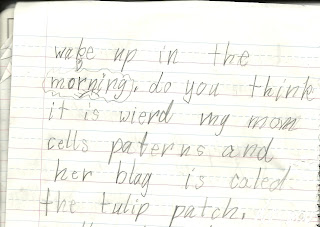 wake up in the
(morning). do you think
it is wierd my mom
cells paterns and
her blag is caled
the tulip patch.